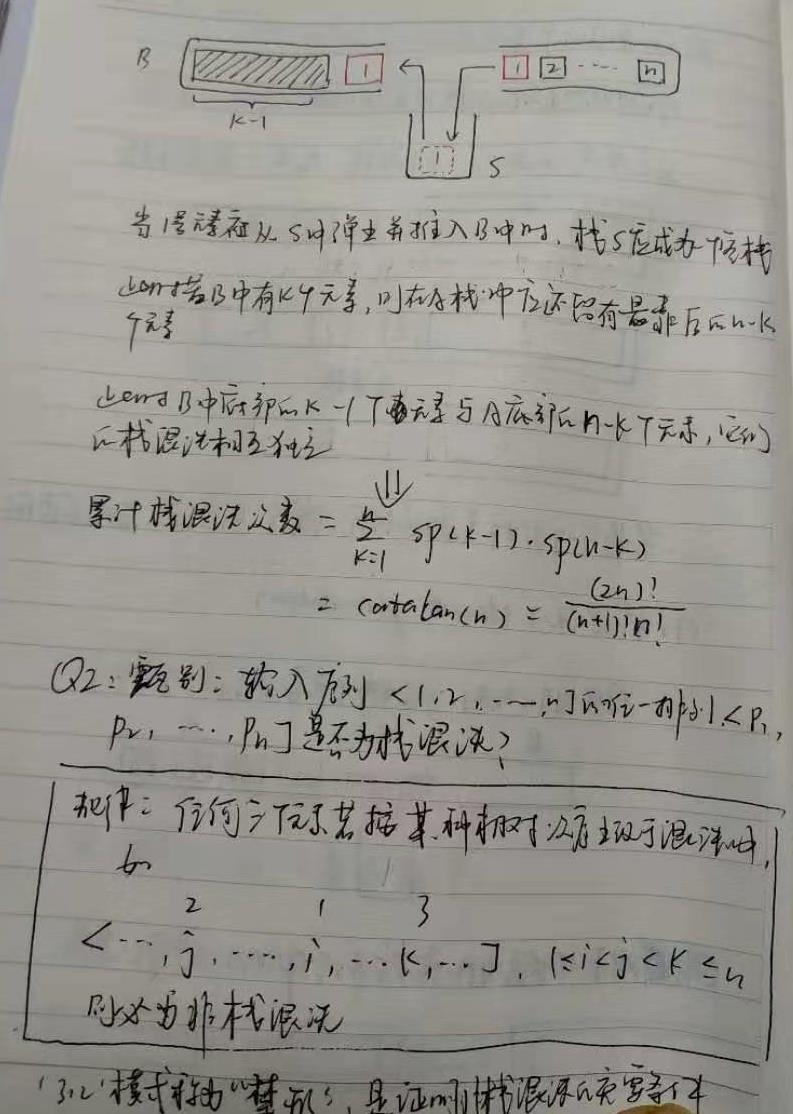 B 1 1 2 ---- n
k-1
1 S
当1号元素在从S中弹出并推入B中时, 栈S应成为一个空栈
此时若B中有k个元素, 则在A栈中应还留有最靠后的n-k
个元素
此时B中底部的k-1个元素与A底部的n-k个元素, 它们
的栈混洗相互独立
⇓
累计栈混洗次数 = n∑k=1 sp(k-1)·sp(n-k)
= catalan(n) = (2n)! / (n+1)!n!
Q2: 甄别: 输入序列 <1,2, ----, n] 的任一排列 <p₁,
p₂, ····, pₙ] 是否为栈混洗?
规律: 任何三个元素若按某种相对次序出现于混洗中,
如
2 1 3
<···, j, ····, i, ··· k, ···], 1≤i<j<k≤n
则必为非栈混洗
'3,1,2'模式称为"禁形", 是证明栈混洗的充要条件